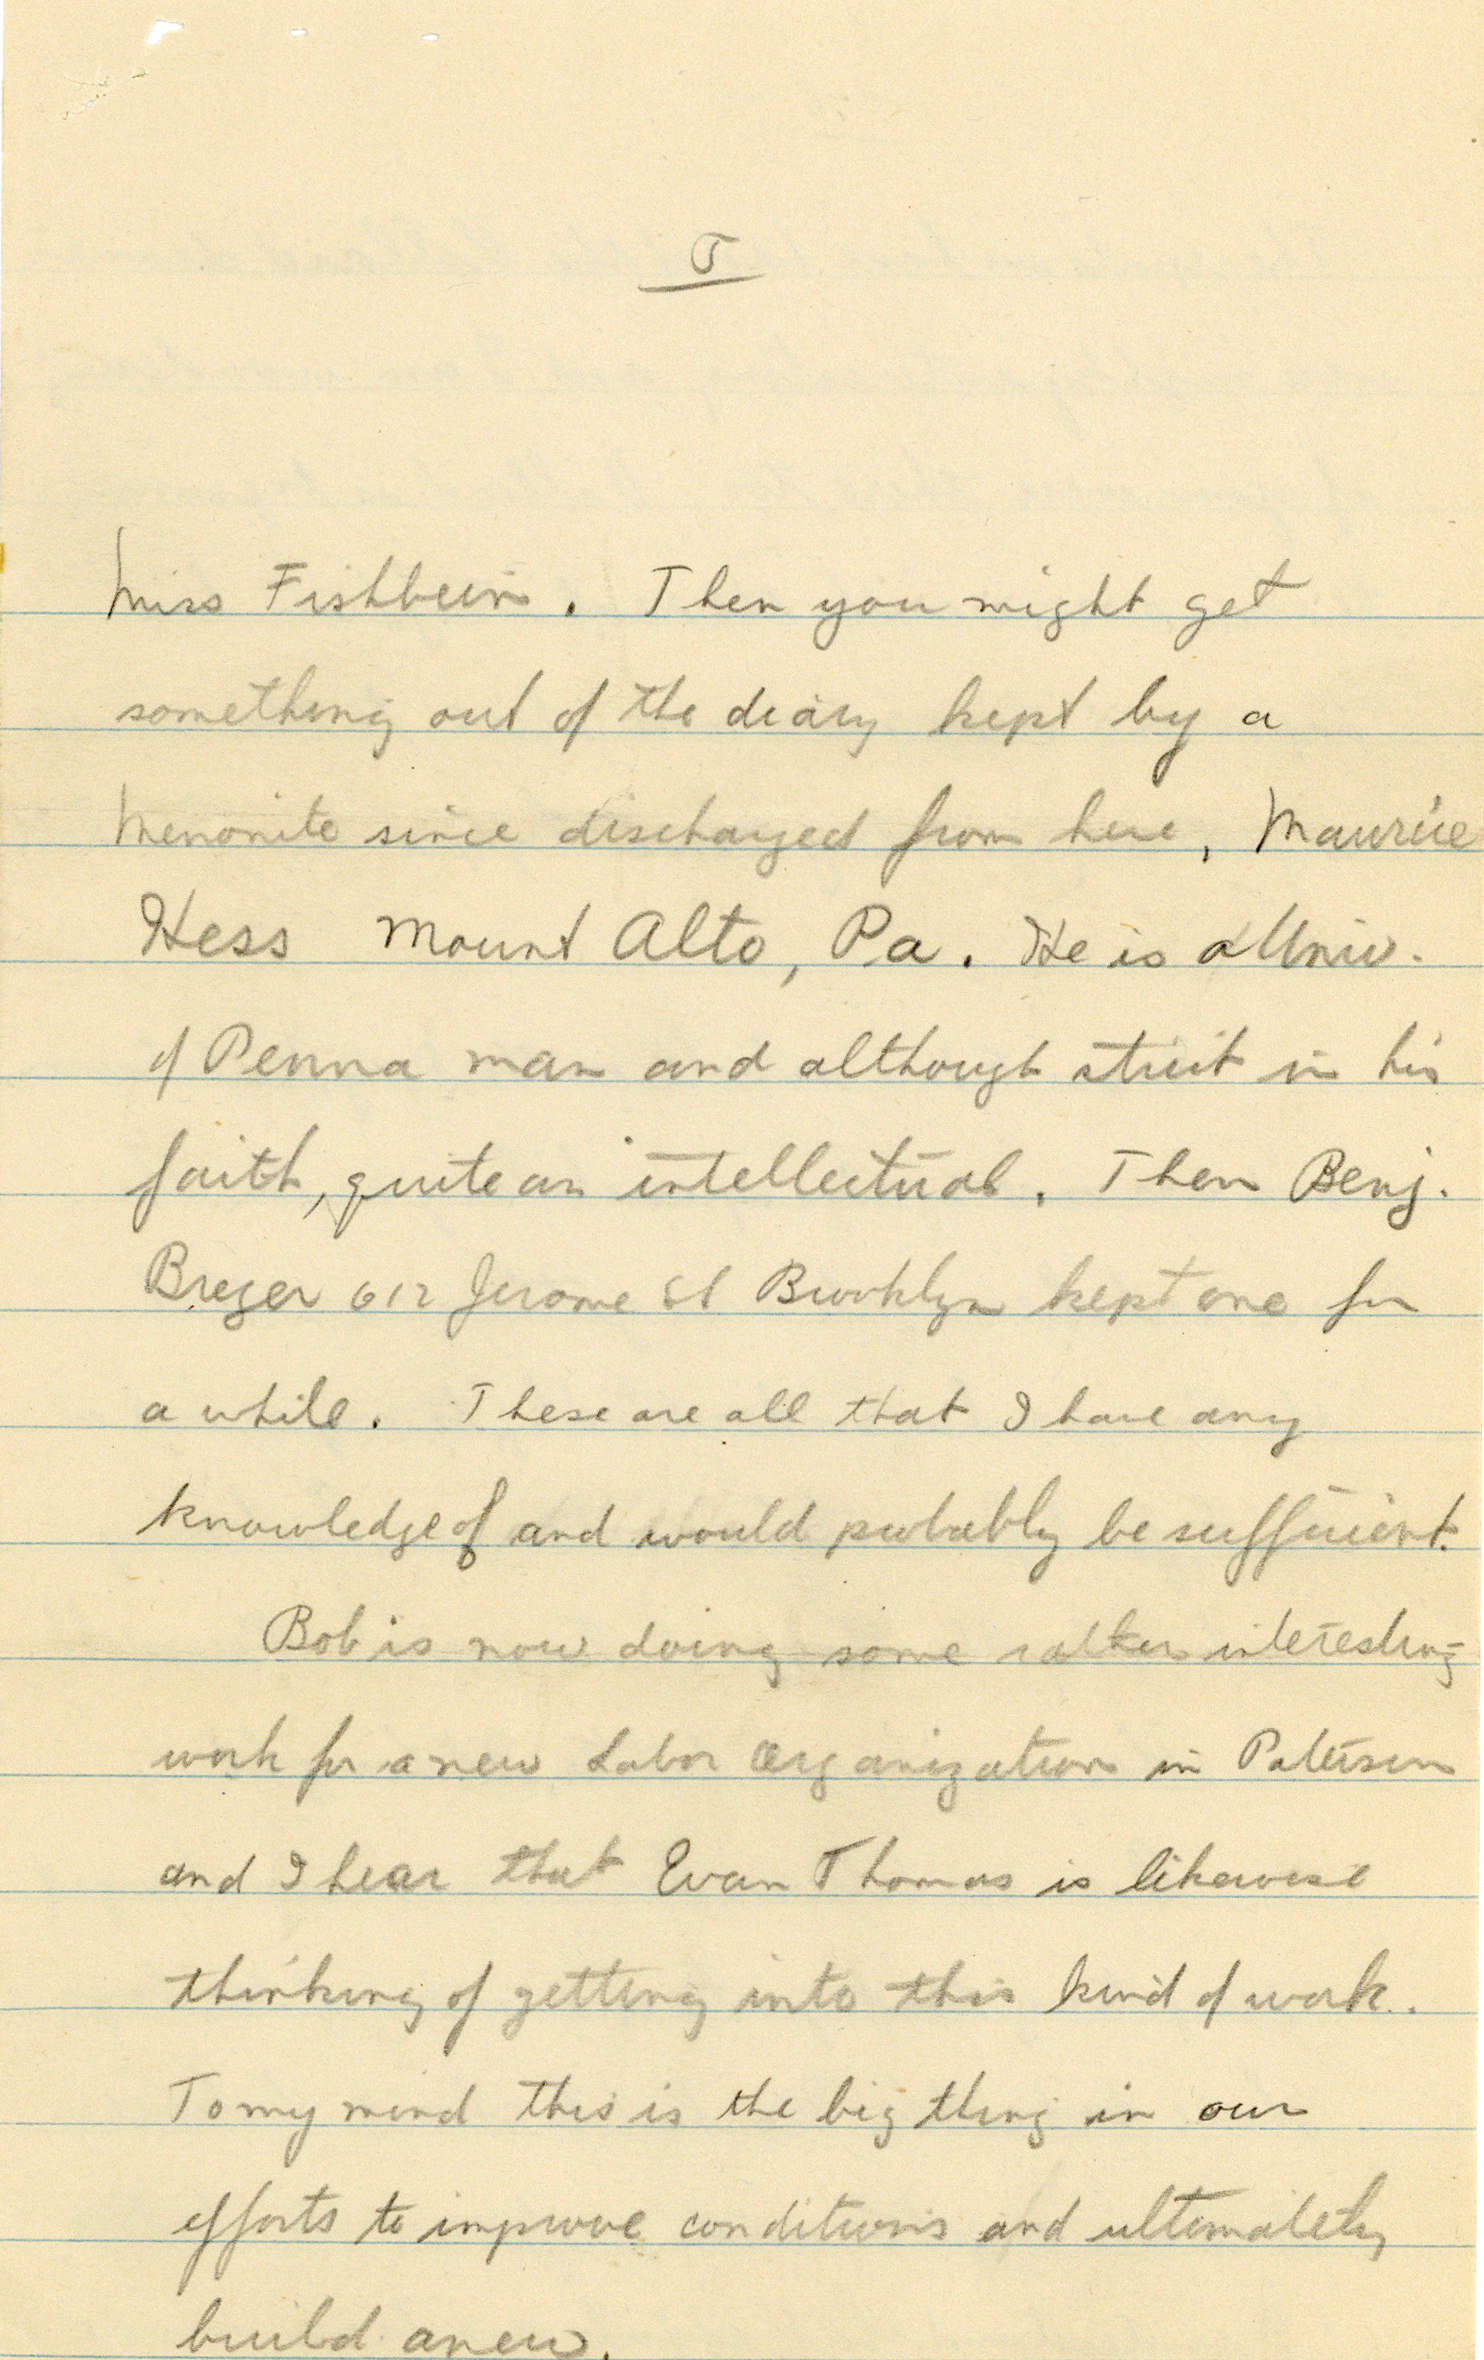 5
Miss Fishbein. Then you might get
something out of the diary kept by a
Menonite since discharged from here, Maurice
Hess Mount Alto, Pa. He is a Univ.
of Penna man and although strict in his
faith, quite an intellectual. Then Benj.
Breger 612 Jerome St Brooklyn kept one for
a while. These are all that I have any
knowledge of and would probably be sufficient.
Bob is now doing some rather interesting
work for a new Labor Organization in Paterson
and I hear that Evan Thomas is likewise
thinking of getting into this kind of work.
To my mind this is the big thing in our
efforts to improve conditions and ultimately
build anew.